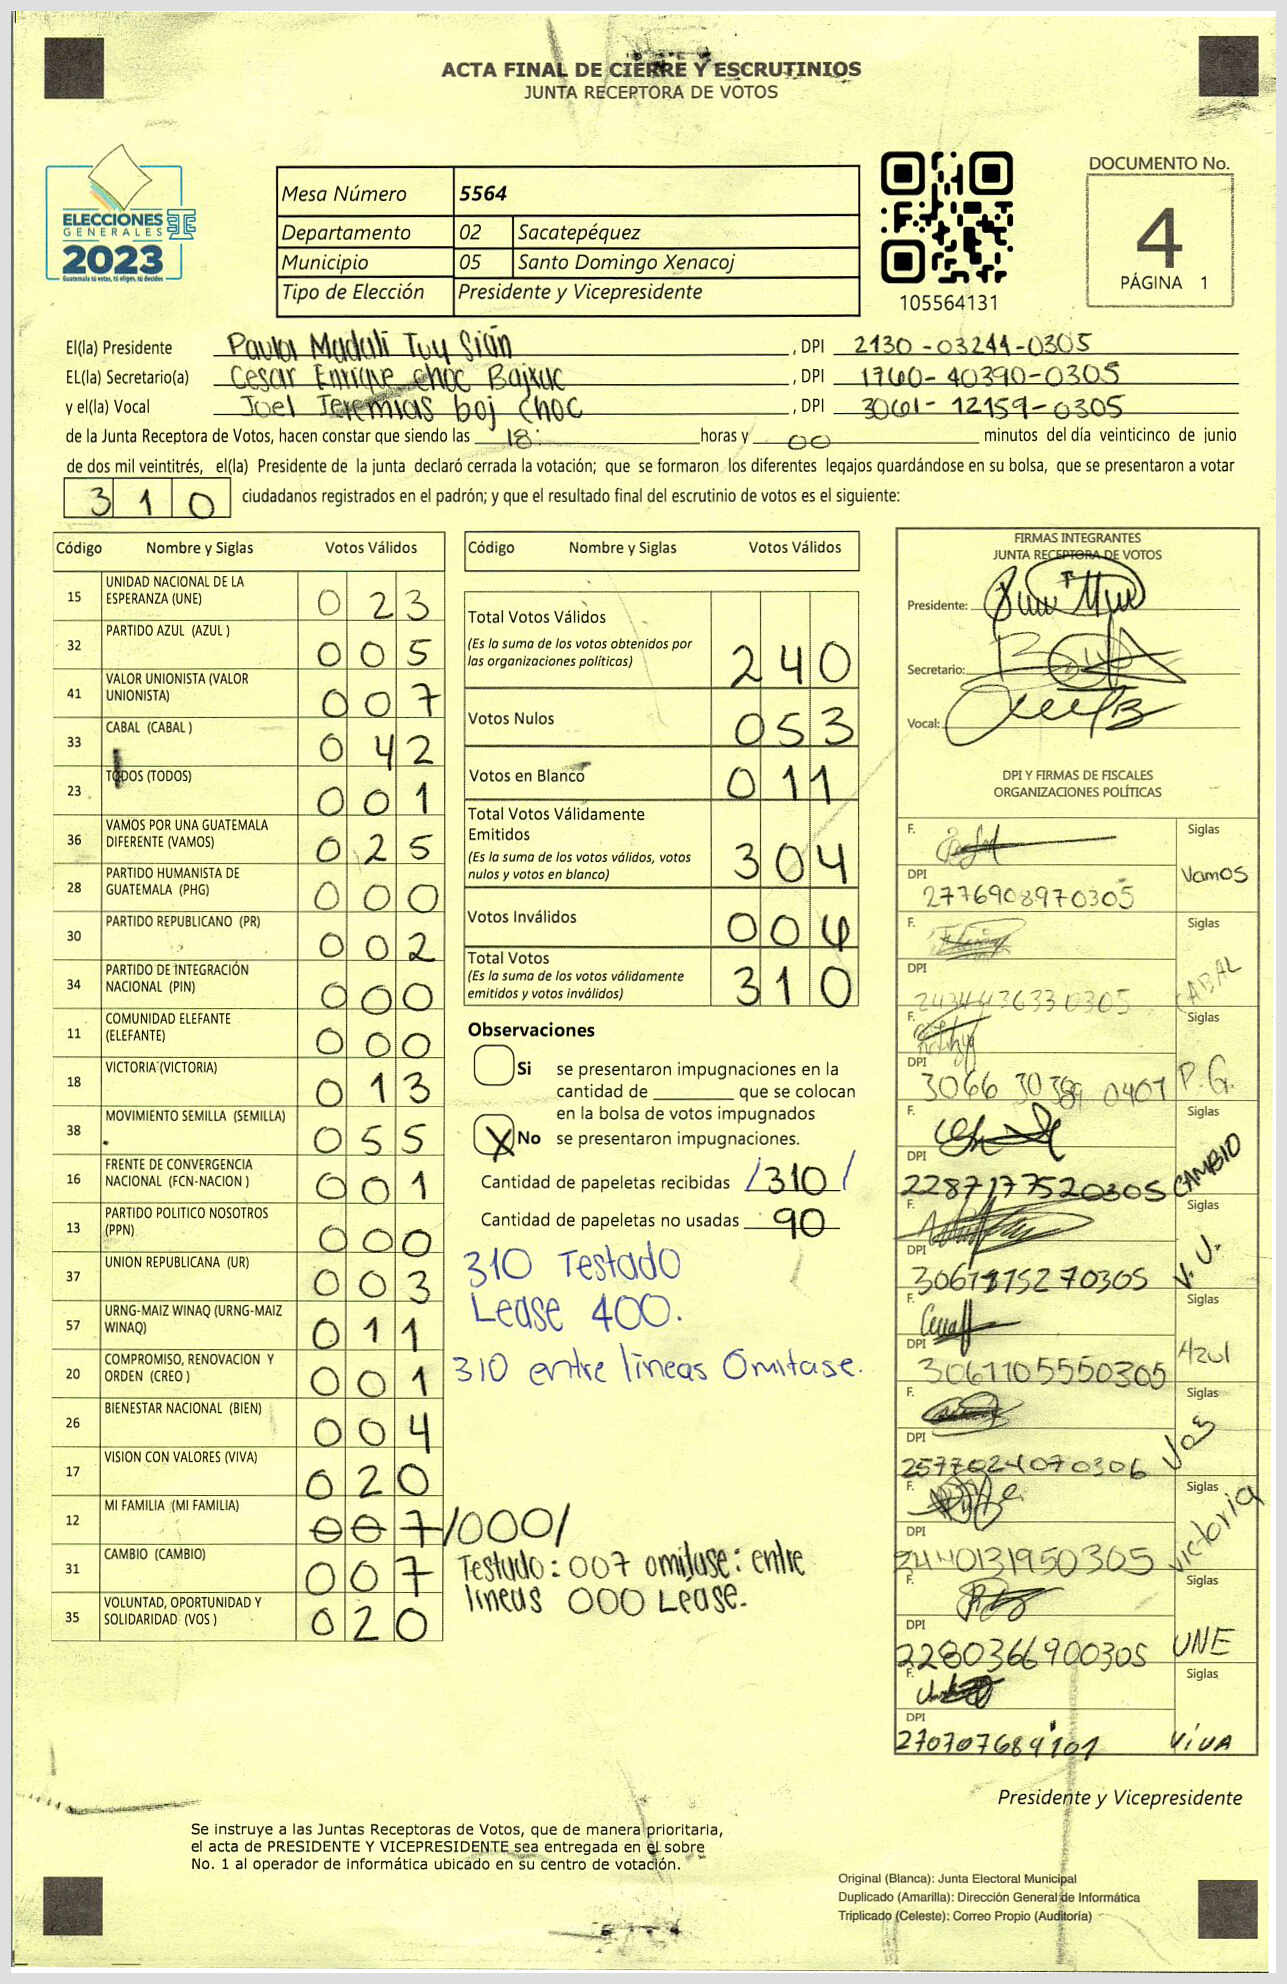 ACTA FINAL DE CIERRE Y ESCRUTINIOS
JUNTA RECEPTORA DE VOTOS
ELECCIONES
GENERALES
2023
Guatemala tú votas, tú eliges, tú decides
Mesa Número 5564
Departamento 02 Sacatepéquez
Municipio 05 Santo Domingo Xenacoj
Tipo de Elección Presidente y Vicepresidente
105564131
DOCUMENTO No.
4
PÁGINA 1
El(la) Presidente Paula Madali Tuy Sián , DPI 2130-03244-0305
EL(la) Secretario(a) Cesar Enrique choc Bajxuc , DPI 1760-40390-0305
y el(la) Vocal Joel Jeremias boj choc , DPI 3061-12159-0305
de la Junta Receptora de Votos, hacen constar que siendo las 18: horas y 00 minutos del día veinticinco de junio
de dos mil veintitrés, el(la) Presidente de la junta declaró cerrada la votación; que se formaron los diferentes legajos guardándose en su bolsa, que se presentaron a votar
310 ciudadanos registrados en el padrón; y que el resultado final del escrutinio de votos es el siguiente:
Código Nombre y Siglas Votos Válidos
15 UNIDAD NACIONAL DE LA ESPERANZA (UNE) 023
32 PARTIDO AZUL (AZUL ) 005
41 VALOR UNIONISTA (VALOR UNIONISTA) 007
33 CABAL (CABAL ) 042
23 TODOS (TODOS) 001
36 VAMOS POR UNA GUATEMALA DIFERENTE (VAMOS) 025
28 PARTIDO HUMANISTA DE GUATEMALA (PHG) 000
30 PARTIDO REPUBLICANO (PR) 002
34 PARTIDO DE INTEGRACIÓN NACIONAL (PIN) 000
11 COMUNIDAD ELEFANTE (ELEFANTE) 000
18 VICTORIA (VICTORIA) 013
38 MOVIMIENTO SEMILLA (SEMILLA) 055
16 FRENTE DE CONVERGENCIA NACIONAL (FCN-NACION ) 001
13 PARTIDO POLITICO NOSOTROS (PPN) 000
37 UNION REPUBLICANA (UR) 003
57 URNG-MAIZ WINAQ (URNG-MAIZ WINAQ) 011
20 COMPROMISO, RENOVACION Y ORDEN (CREO ) 001
26 BIENESTAR NACIONAL (BIEN) 004
17 VISION CON VALORES (VIVA) 020
12 MI FAMILIA (MI FAMILIA) 007 /000/
31 CAMBIO (CAMBIO) 007
35 VOLUNTAD, OPORTUNIDAD Y SOLIDARIDAD (VOS ) 020
Código Nombre y Siglas Votos Válidos
Total Votos Válidos
(Es la suma de los votos obtenidos por las organizaciones políticas) 240
Votos Nulos 053
Votos en Blanco 011
Total Votos Válidamente Emitidos
(Es la suma de los votos válidos, votos nulos y votos en blanco) 304
Votos Inválidos 006
Total Votos
(Es la suma de los votos válidamente emitidos y votos inválidos) 310
Observaciones
Si se presentaron impugnaciones en la
cantidad de ________ que se colocan
en la bolsa de votos impugnados
X No se presentaron impugnaciones.
Cantidad de papeletas recibidas /310/
Cantidad de papeletas no usadas 90
310 Testado
Lease 400.
310 entre líneas Omitase.
Testado: 007 omitase: entre
líneas 000 Lease.
FIRMAS INTEGRANTES
JUNTA RECEPTORA DE VOTOS
Presidente:
Secretario:
Vocal:
DPI Y FIRMAS DE FISCALES
ORGANIZACIONES POLÍTICAS
F. Siglas
DPI 2776908970305 Vamos
F. Siglas
DPI CABAL
F. Siglas
DPI P.G.
F. Siglas
DPI 2287177520305 CAMBIO
F. Siglas
DPI V.U.
F. Siglas
DPI 3061105550305 Azul
F. Siglas
DPI 2577024070306 Vos
F. Siglas
DPI 2440131950305 Victoria
F. Siglas
DPI 2280366900305 UNE
F. Siglas
DPI 270707684101 ViVA
Presidente y Vicepresidente
Se instruye a las Juntas Receptoras de Votos, que de manera prioritaria,
el acta de PRESIDENTE Y VICEPRESIDENTE sea entregada en el sobre
No. 1 al operador de informática ubicado en su centro de votación.
Original (Blanca): Junta Electoral Municipal
Duplicado (Amarilla): Dirección General de Informática
Triplicado (Celeste): Correo Propio (Auditoría)